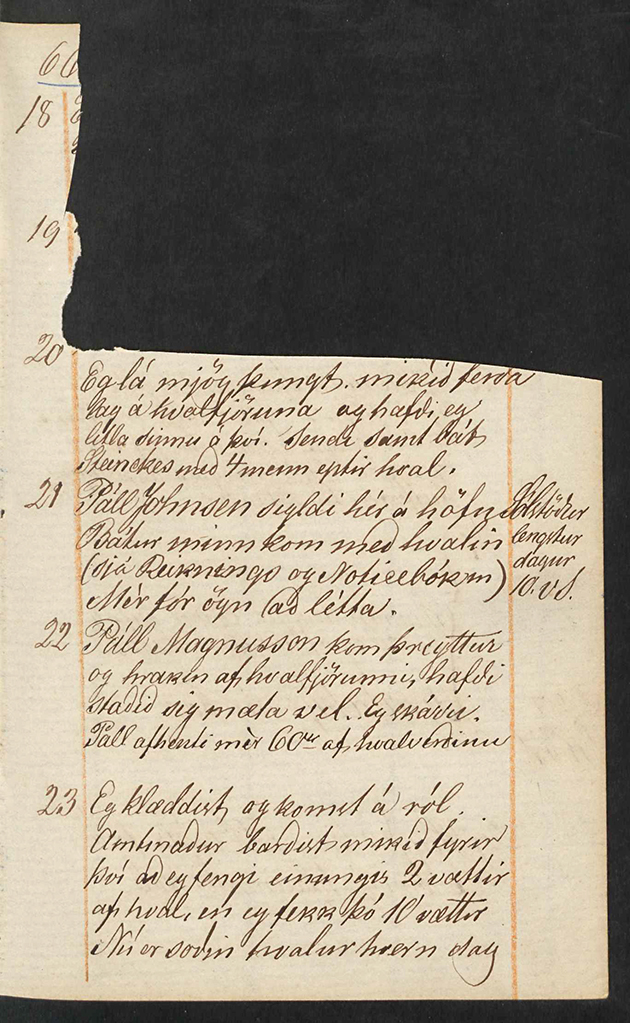 66
18
19
20
Eg lá mjög þungt. mikið ferða
lag á hvalfjöruna og hafði eg
litla sinnu á því. Sendi samt bát
Steinckes með 4 menn eptir hval.
21 Páll Johnsen sigldi hér á höfn
Sólstöður
lengstur
dagur
10. v S.
Bátur minn kom með hvalin
(sjá Reiknings og Noticebókin)
Mér fór ögn að létta.
22 Páll Magnusson kom þreyttur
og hrakin af hvalfjörunni, hafði
staðið sig mæta vel. Eg skárri.
Páll afhenti mér 60 af hvalverðinu
23 Eg klæddist og komst á ról.
Amtmaður barðist mikið fyrir
því að eg fengi einungis 2 vættir
af hval, en eg fekk þó 10 vættir
Nú er soðin hvalur hvern dag